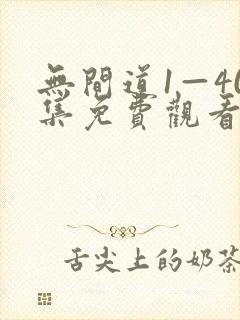 無間道1—40
集免費觀看
舌尖上的奶茶